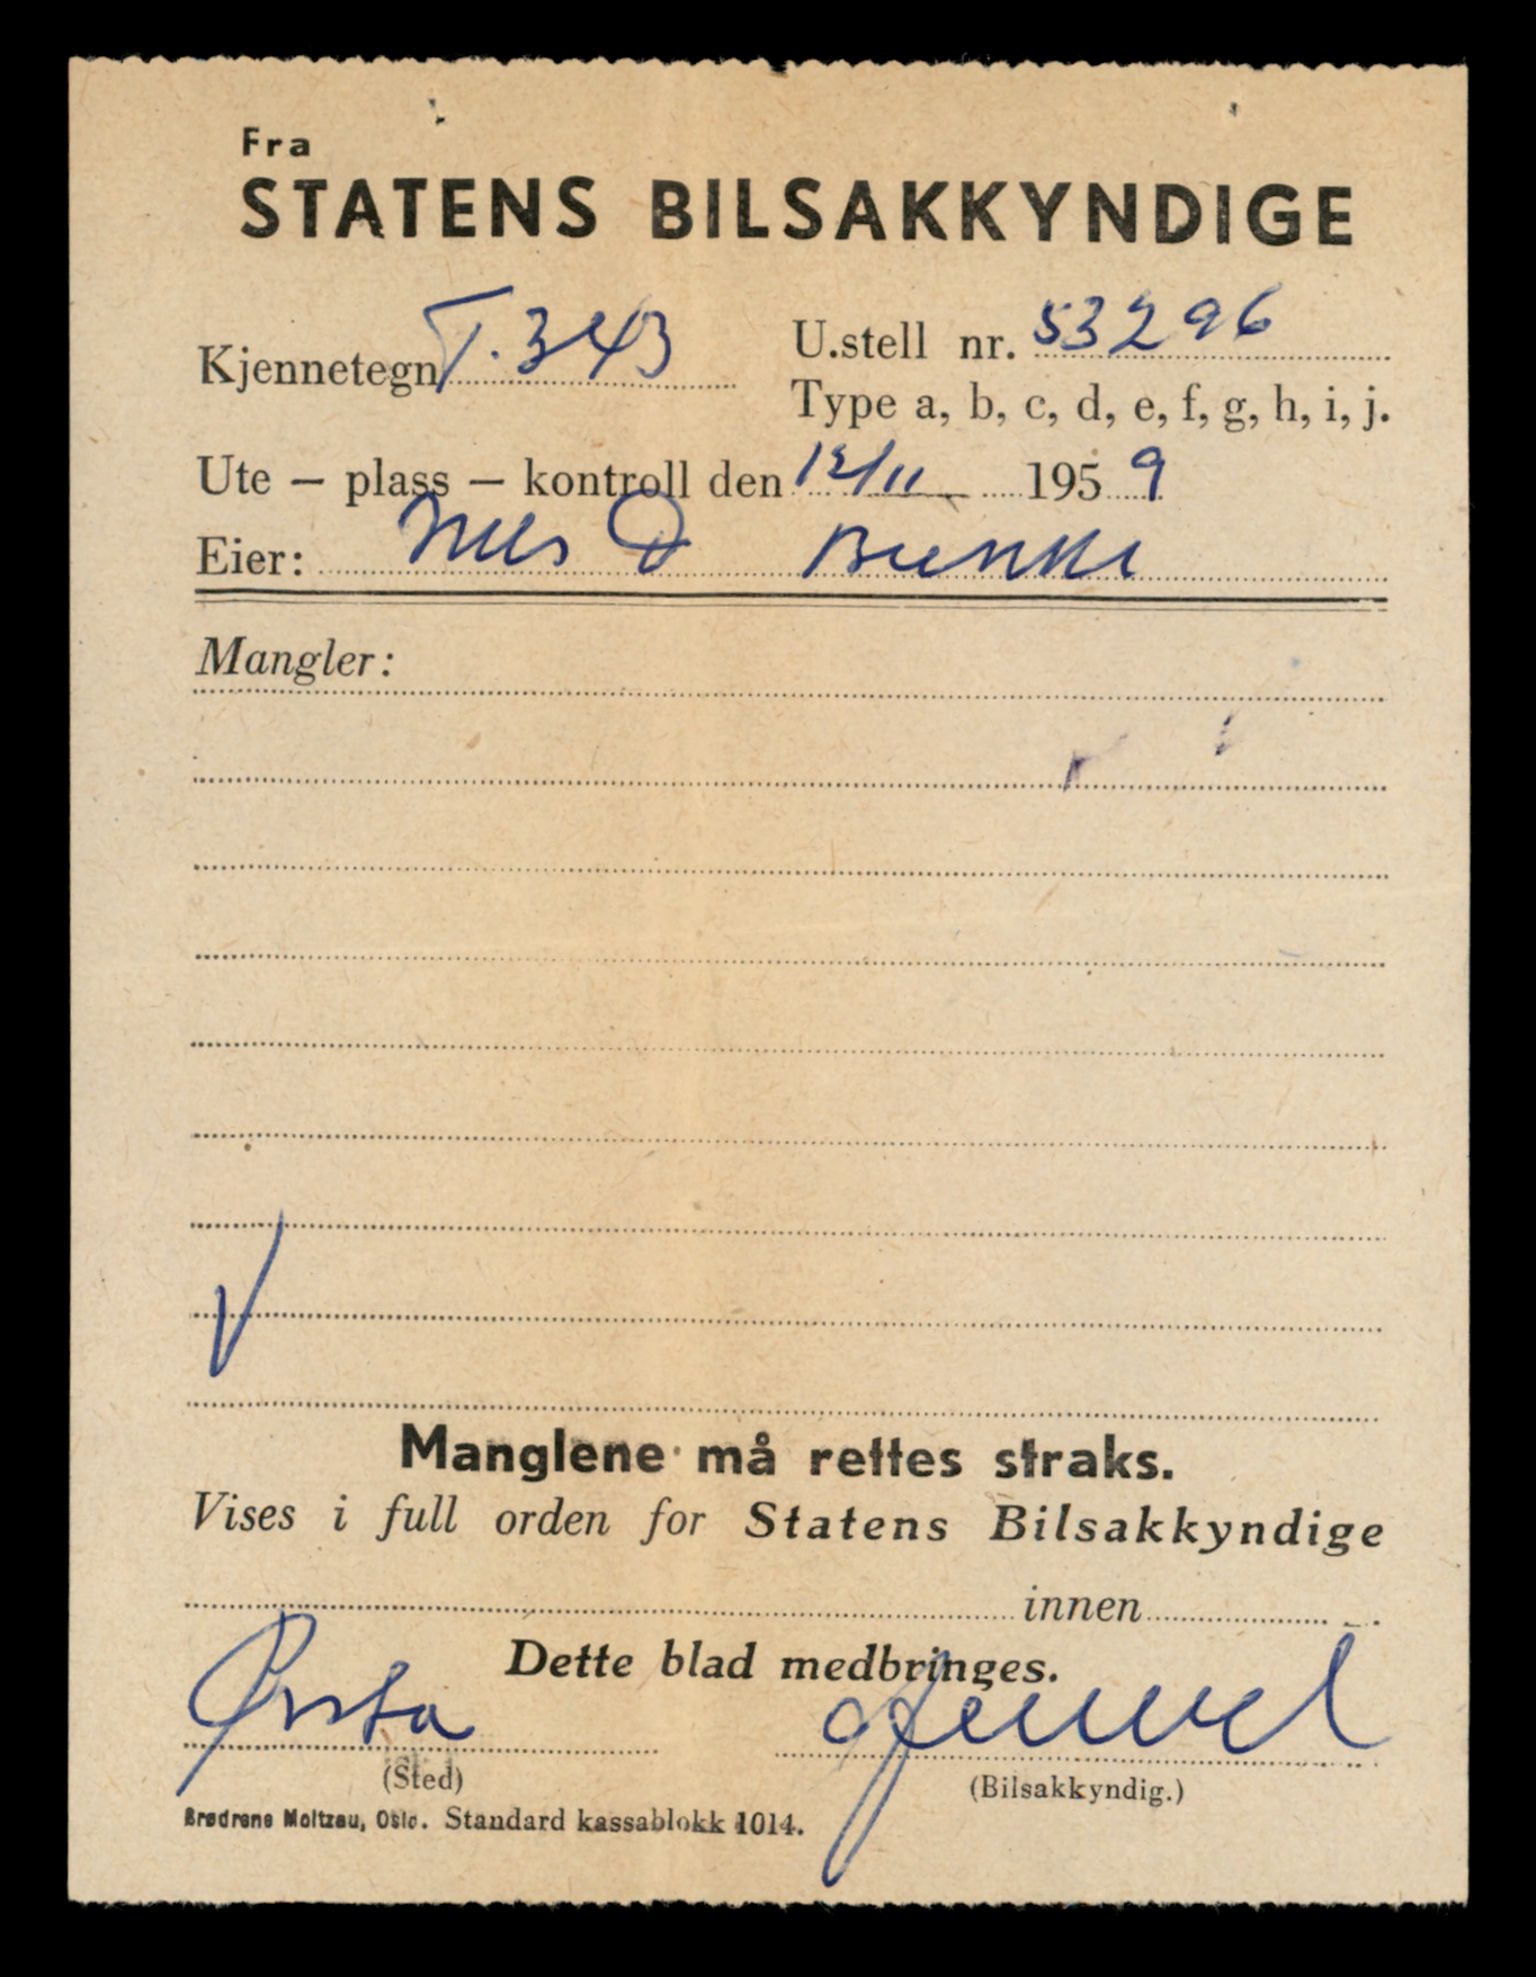 Fra
STATENS BILSAKKYNDIGE
Kjennetegn T. 343
U.stell nr. 53296
Type a, b, c, d, e, f, g, h, i, j.
Ute – plass – kontroll den 12/11 1959
Eier: Nils O
Mangler:
Manglene må rettes straks.
Vises i full orden for Statens Bilsakkyndige
innen
Dette blad medbringes.
Ørsta
(Sted)
(Bilsakkyndig.)
Brødrene Moltzau, Oslo. Standard kassablokk 1014.